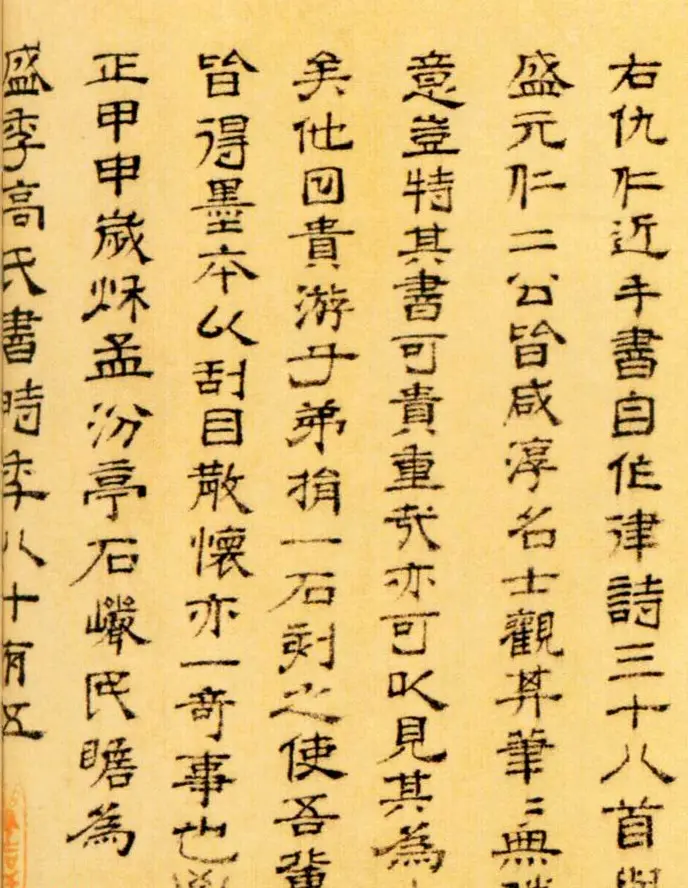 右仇仁近手書自作律詩三十八首與
盛元仁二公皆咸淳名士觀其筆〻無
意豈特其書可貴重哉亦可以見其為
矣他回貴游子弟捐一石刻之使吾輩
皆得墨本以刮目散懷亦一奇事也
正甲申歲秌孟汾亭石巖民瞻為
盛季高氏書時年八十有五